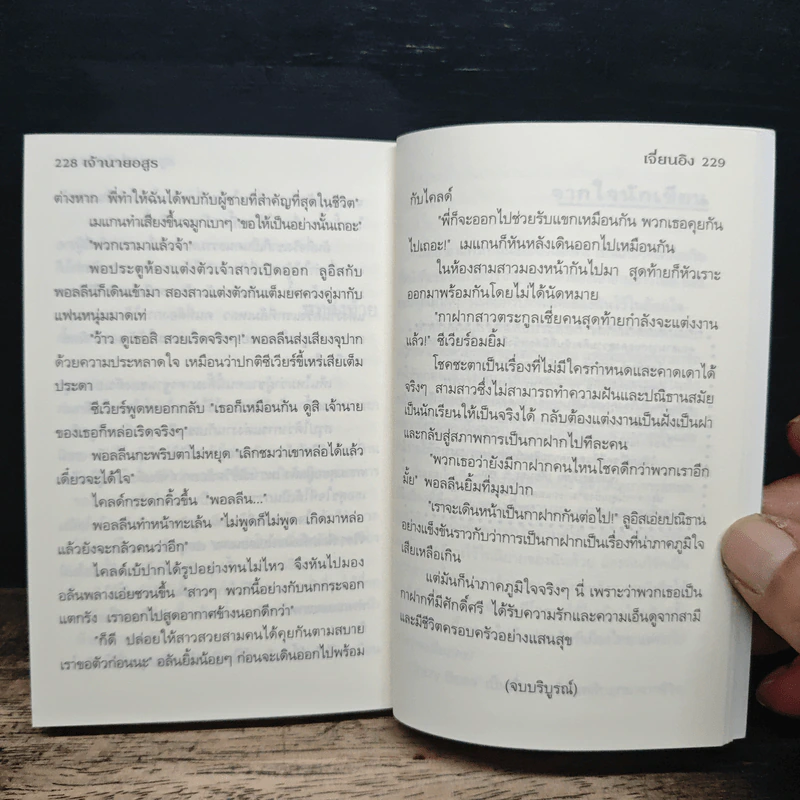 228 เจ้านายอสูร
ต่างหาก พี่ทำให้ฉันได้พบกับผู้ชายที่สำคัญที่สุดในชีวิต"
เมแกนทำเสียงขึ้นจมูกเบาๆ "ขอให้เป็นอย่างนั้นเถอะ"
"พวกเรามาแล้วจ้า"
พอประตูห้องแต่งตัวเจ้าสาวเปิดออก ลูอิสกับ
พอลลีนก็เดินเข้ามา สองสาวแต่งตัวกันเต็มยศควงคู่มากับ
แฟนหนุ่มมาดเท่
"ว้าว ดูเธอสิ สวยเริดจริงๆ!" พอลลีนส่งเสียงจุปาก
ด้วยความประหลาดใจ เหมือนว่าปกติซีเวียร์ขี้เหร่เสียเต็ม
ประดา
ซีเวียร์พูดหยอกกลับ "เธอก็เหมือนกัน ดูสิ เจ้านาย
ของเธอก็หล่อเริดจริงๆ"
พอลลีนกะพริบตาไม่หยุด "เลิกชมว่าเขาหล่อได้แล้ว
เดี๋ยวจะได้ใจ"
ไคลด์กระดกคิ้วขึ้น "พอลลีน..."
พอลลีนทำหน้าทะเล้น "ไม่พูดก็ไม่พูด เกิดมาหล่อ
แล้วยังจะกลัวคนว่าอีก"
ไคลด์เบ้ปากได้รูปอย่างทนไม่ไหว จึงหันไปมอง
อลันพลางเอ่ยชวนขึ้น "สาวๆ พวกนี้อย่างกับนกกระจอก
แตกรัง เราออกไปสูดอากาศข้างนอกดีกว่า"
"ก็ดี ปล่อยให้สาวสวยสามคนได้คุยกันตามสบาย
เราขอตัวก่อนนะ" อลันยิ้มน้อยๆ ก่อนจะเดินออกไปพร้อม
เจี่ยนอิง 229
กับไคลด์
"พี่ก็จะออกไปช่วยรับแขกเหมือนกัน พวกเธอคุยกัน
ไปเถอะ!" เมแกนก็หันหลังเดินออกไปเหมือนกัน
ในห้องสามสาวมองหน้ากันไปมา สุดท้ายก็หัวเราะ
ออกมาพร้อมกันโดยไม่ได้นัดหมาย
"กาฝากสาวตระกูลเซี่ยคนสุดท้ายกำลังจะแต่งงาน
แล้ว!" ซีเวียร์อมยิ้ม
โชคชะตาเป็นเรื่องที่ไม่มีใครกำหนดและคาดเดาได้
จริงๆ สามสาวซึ่งไม่สามารถทำความฝันและปณิธานสมัย
เป็นนักเรียนให้เป็นจริงได้ กลับต้องแต่งงานเป็นฝั่งเป็นฝา
และกลับสู่สภาพการเป็นกาฝากไปทีละคน
"พวกเธอว่ายังมีกาฝากคนไหนโชคดีกว่าพวกเราอีก
มั้ย" พอลลีนยิ้มที่มุมปาก
"เราจะเดินหน้าเป็นกาฝากกันต่อไป!" ลูอิสเอ่ยปณิธาน
อย่างแข็งขันราวกับว่าการเป็นกาฝากเป็นเรื่องที่น่าภาคภูมิใจ
เสียเหลือเกิน
แต่มันก็น่าภาคภูมิใจจริงๆ นี่ เพราะว่าพวกเธอเป็น
กาฝากที่มีศักดิ์ศรี ได้รับความรักและความเอ็นดูจากสามี
และมีชีวิตครอบครัวอย่างแสนสุข
(จบบริบูรณ์)